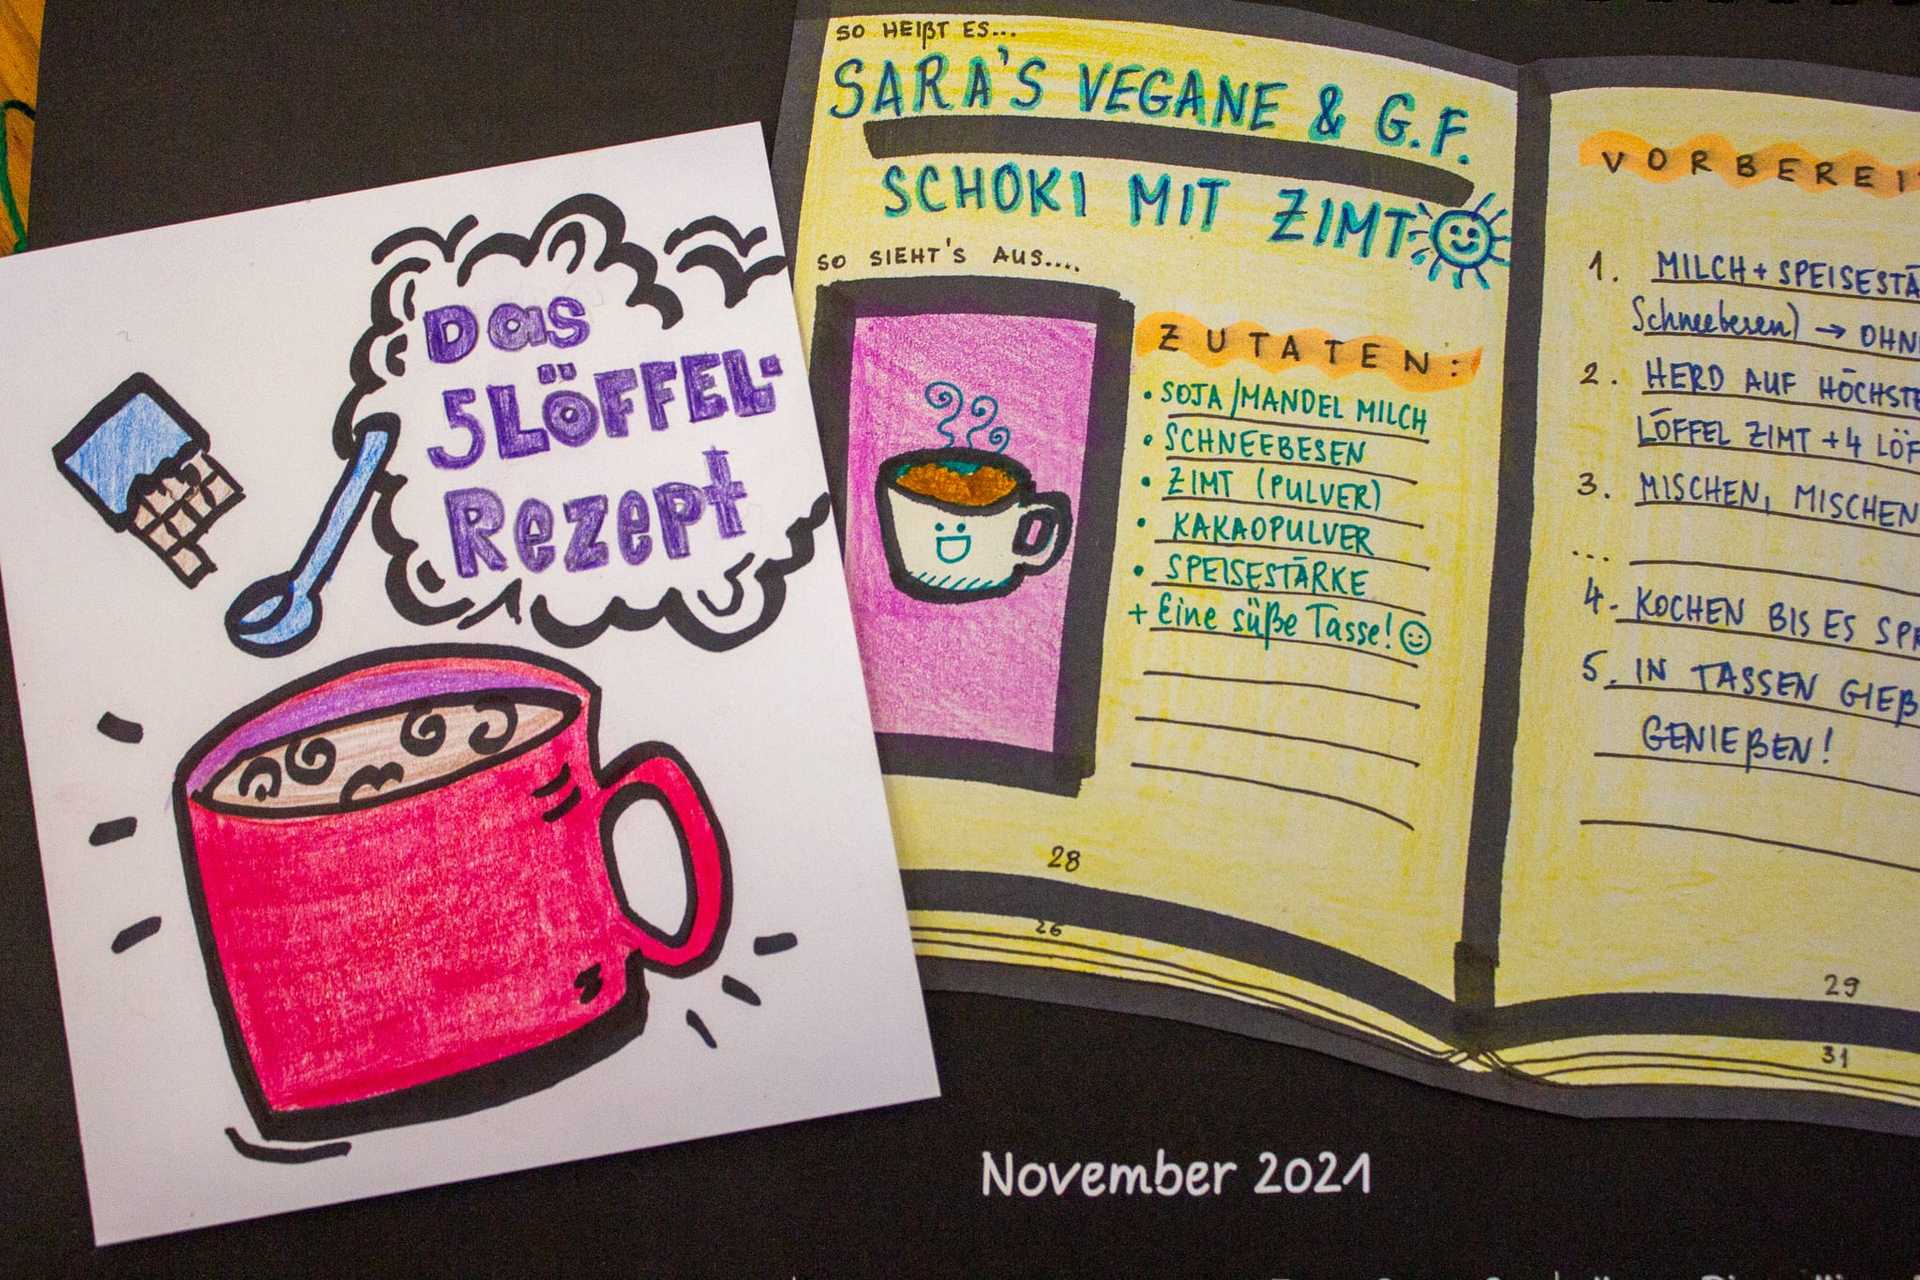 Das
5 Löffel-
Rezept
SO HEIßT ES...
SARA'S VEGANE & G.F.
SCHOKI MIT ZIMT
SO SIEHT'S AUS....
ZUTATEN:
• SOJA/MANDEL MILCH
• SCHNEEBESEN
• ZIMT (PULVER)
• KAKAOPULVER
• SPEISESTÄRKE
+ Eine süße Tasse!
28
26
VORBEREI
1. MILCH + SPEISESTÄ
Schneebesen) → OHN
2. HERD AUF HÖCHSTE
LÖFFEL ZIMT + 4 LÖF
3. MISCHEN, MISCHEN
...
4. KOCHEN BIS ES SPR
5. IN TASSEN GIEß
GENIEßEN!
29
31
November 2021